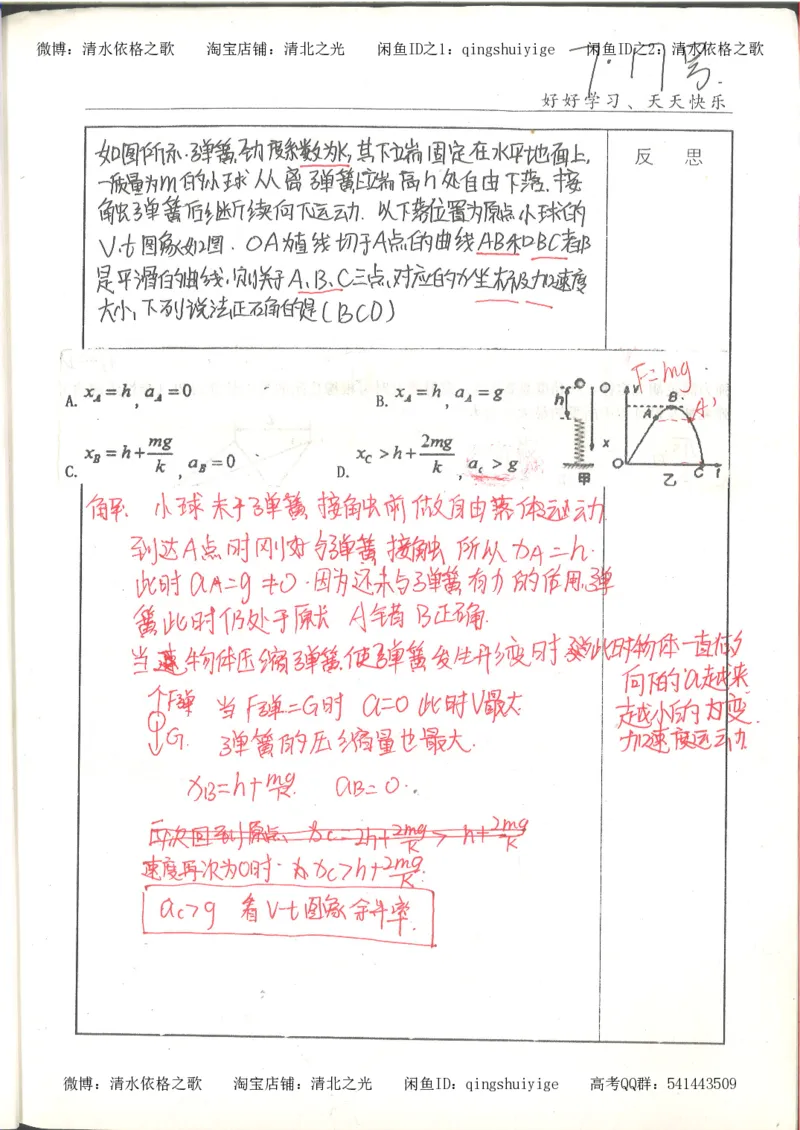 微博：清水依格之歌 淘宝店铺：清北之光 闲鱼ID之1：qingshuiyige 闲鱼ID之2：清水依格之歌
7.17号.
好好学习、天天快乐
反 思
如图所示.弹簧劲度系数为k,其下端固定在水平地面上,
一质量为m的小球从离弹簧上端高h处自由下落.接
触弹簧后继续向下运动.以下落位置为原点小球的
V-t图象如图.OA为直线切于A点的曲线AB和BC都
是平滑的曲线,则关于A、B、C三点,对应的x坐标及加速度
大小,下列说法正确的是(BCD)
A. xA=h, aA=0
B. xA=h, aA=g
C. xB=h+mg/k, aB=0
D. xC>h+2mg/k, aC>g
h
x
甲
F=mg
v
B
A
A'
O
C
t
乙
解. 小球未于弹簧接触前做自由落体运动
到达A点时刚好与弹簧接触 所以xA=h.
此时aA=g≠0.因为还未与弹簧有力的作用.弹
簧此时仍处于原长 A错B正确.
当物体压缩弹簧使弹簧发生形变时 此时物体一直做
向下的a越来
越小的变
加速度运动
F弹
G
当F弹=G时 a=0 此时V最大
弹簧的压缩量也最大.
xB=h+mg/k. aB=0.
再次回到原点、xC=2h+2mg/k > h+2mg/k
速度再次为0时. xC>h+2mg/k.
aC>g 看V-t图象斜率.
微博：清水依格之歌 淘宝店铺：清北之光 闲鱼ID：qingshuiyige 高考QQ群：541443509